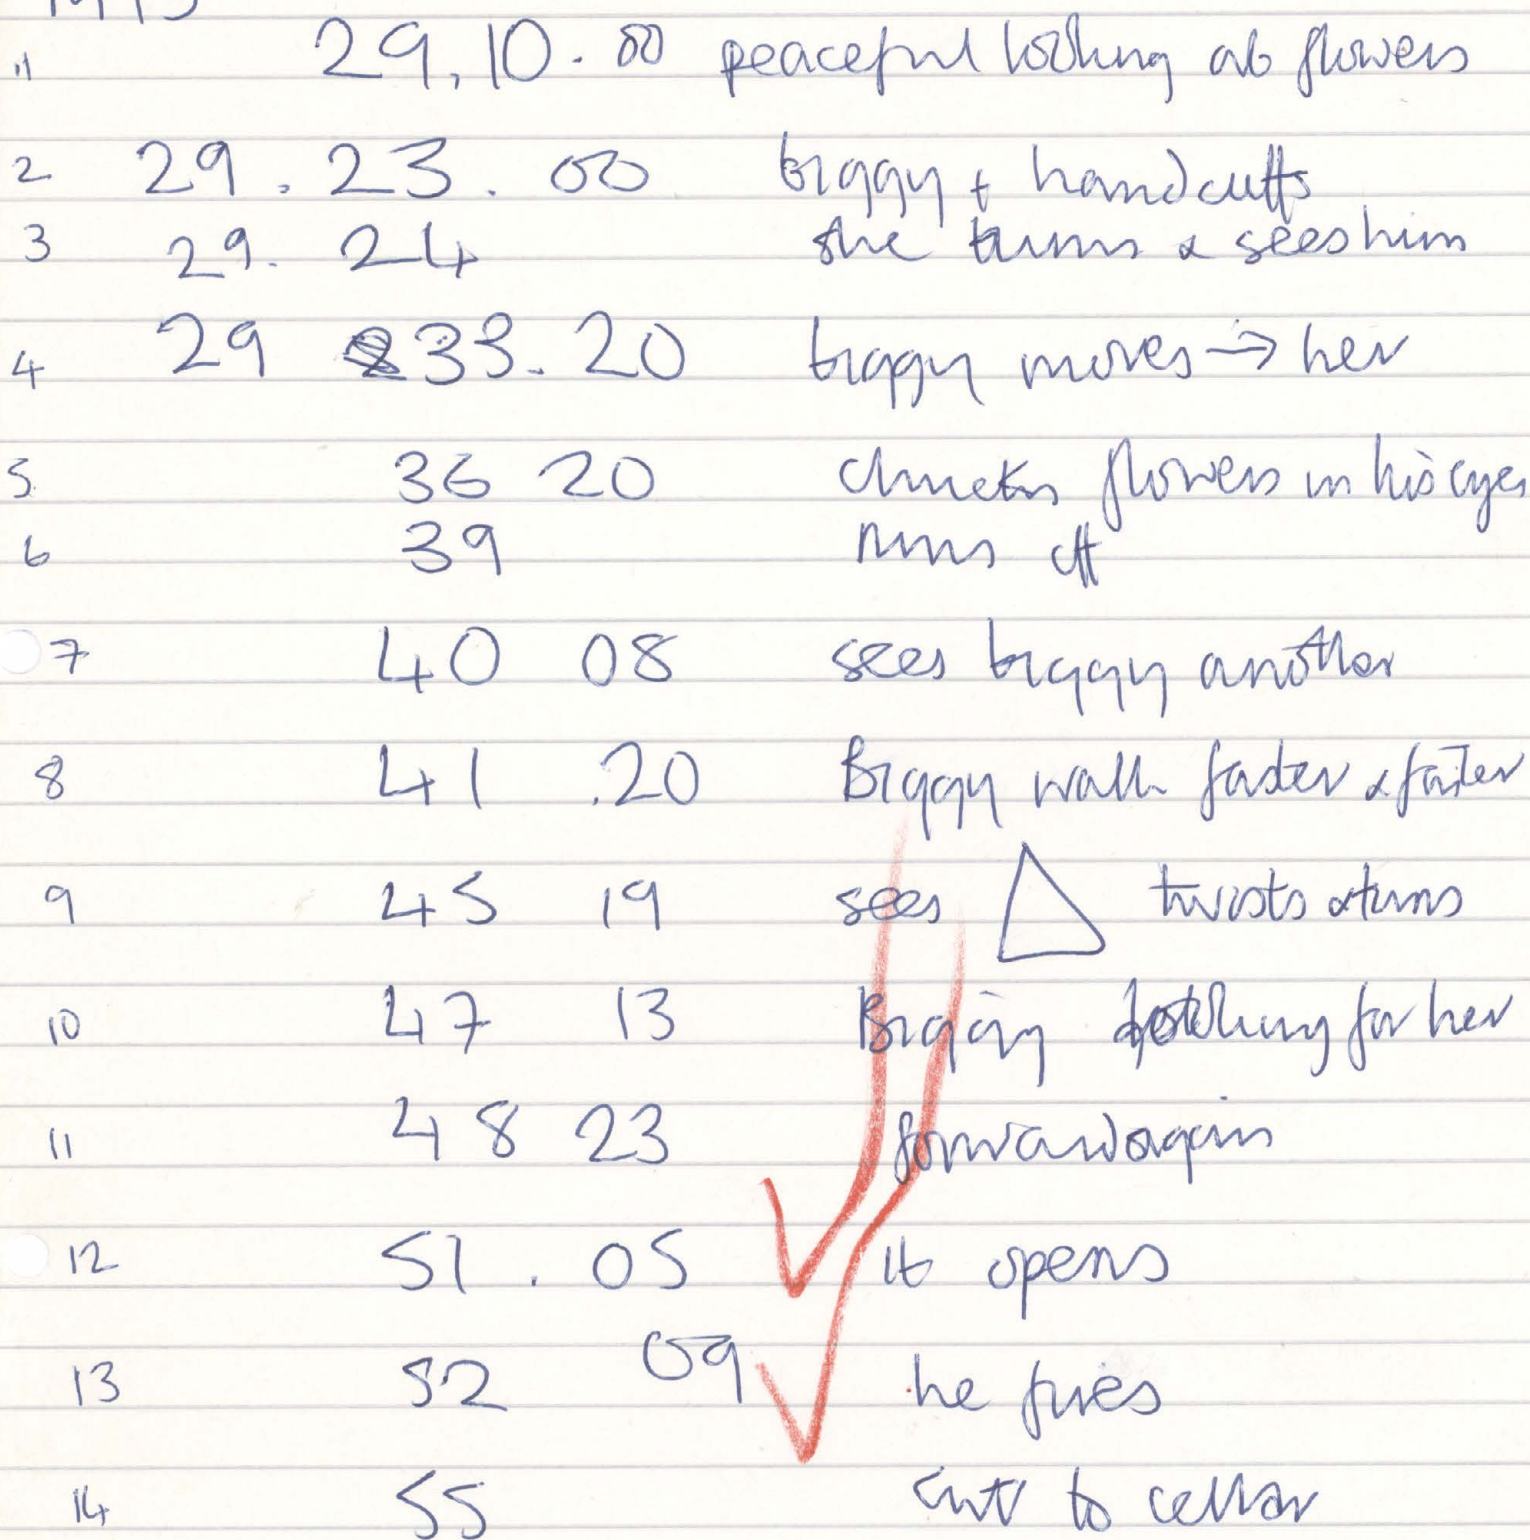 1 29.10.00 peaceful looking at flowers
2 29.23.00 biggy + handcuffs
3 29.24 she turns & sees him
4 29 33.20 biggy moves → her
5 36 20 chucks flowers in his eyes
6 39 runs off
7 40 08 sees biggy another
8 41 .20 Biggy walk faster & faster
9 45 19 sees △ twists & turns
10 47 13 Biggy looking for her
11 48 23 forward again
12 51.05 it opens
13 52 09 he fires
14 55 to cellar